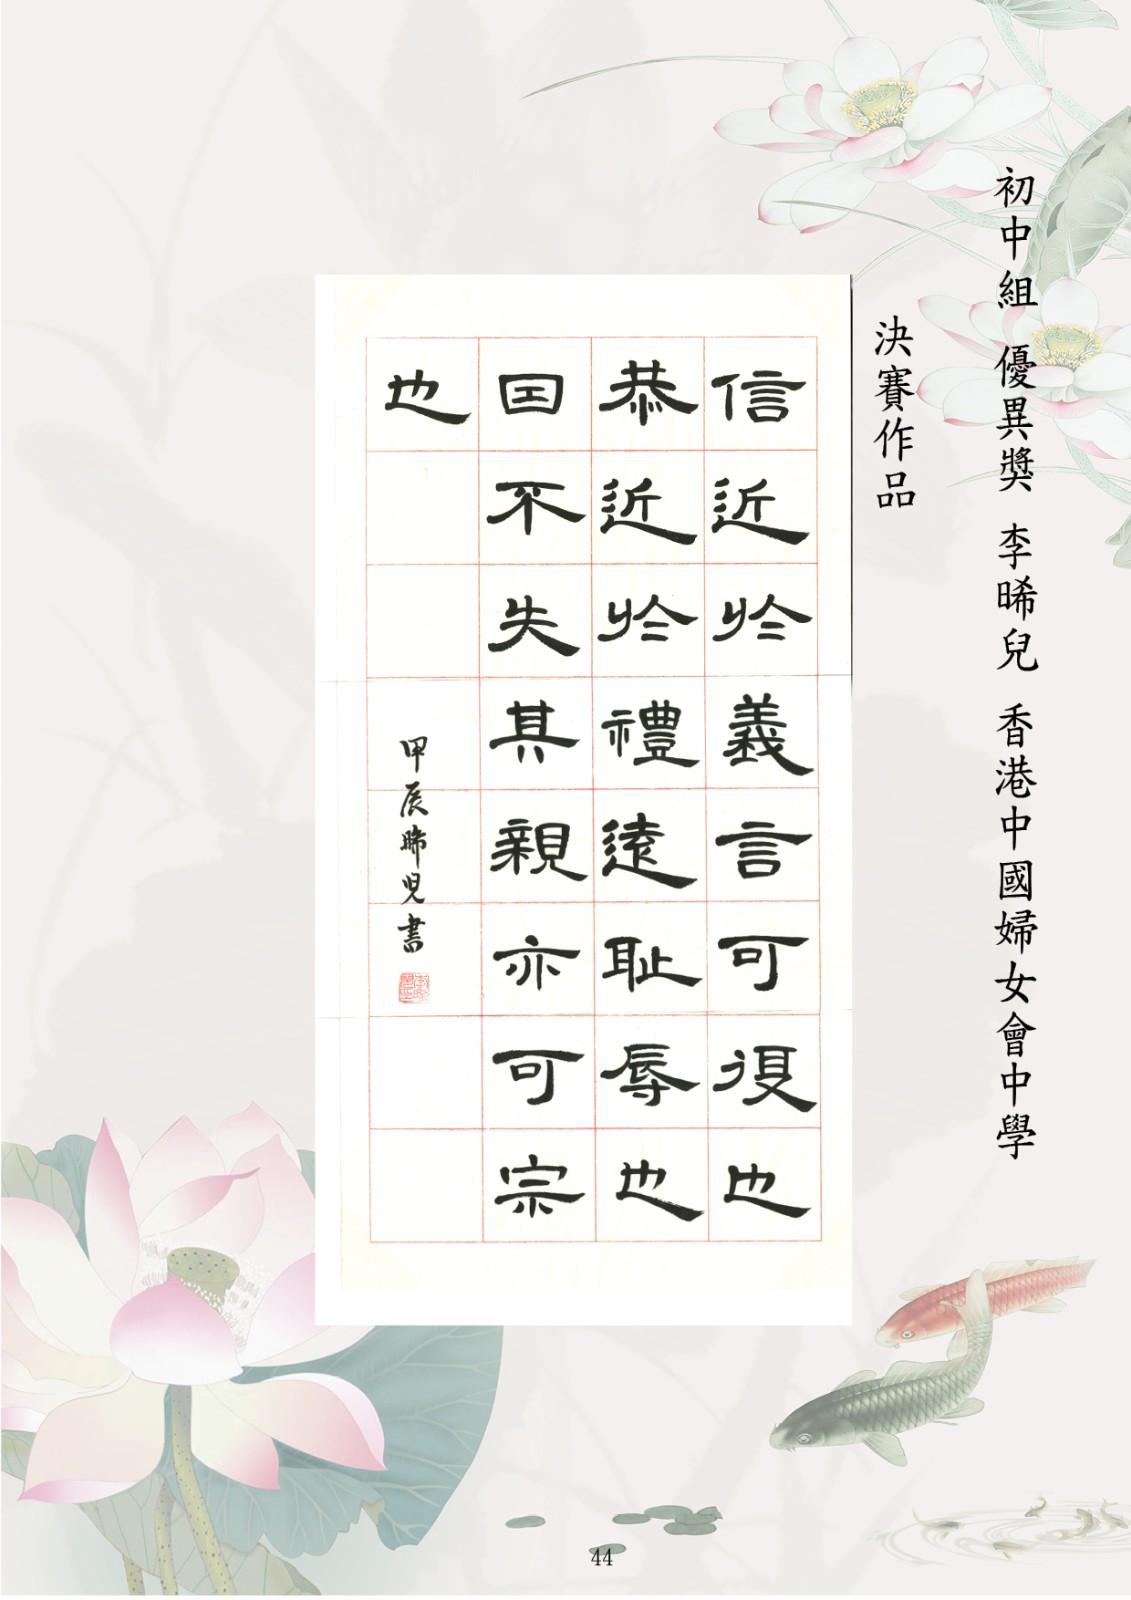 初中組 優異獎 李晞兒 香港中國婦女會中學
決賽作品
信近於義言可復也
恭近於禮遠耻辱也
因不失其親亦可宗
也
甲辰晞兒書
44